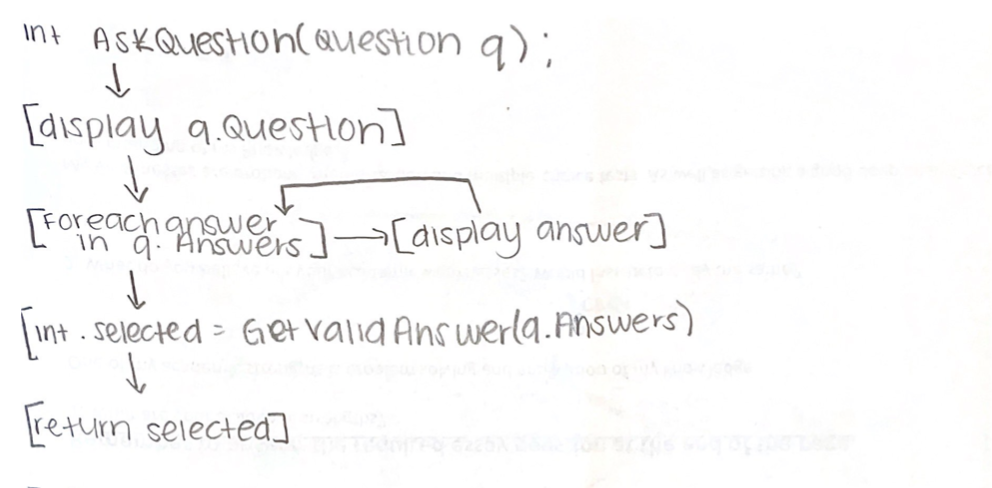 int AskQuestion(question q);
[display q.Question]
[Foreach answer
in q. Answers] [display answer]
[int. selected = GetValidAnswer(q.Answers)
[return selected]